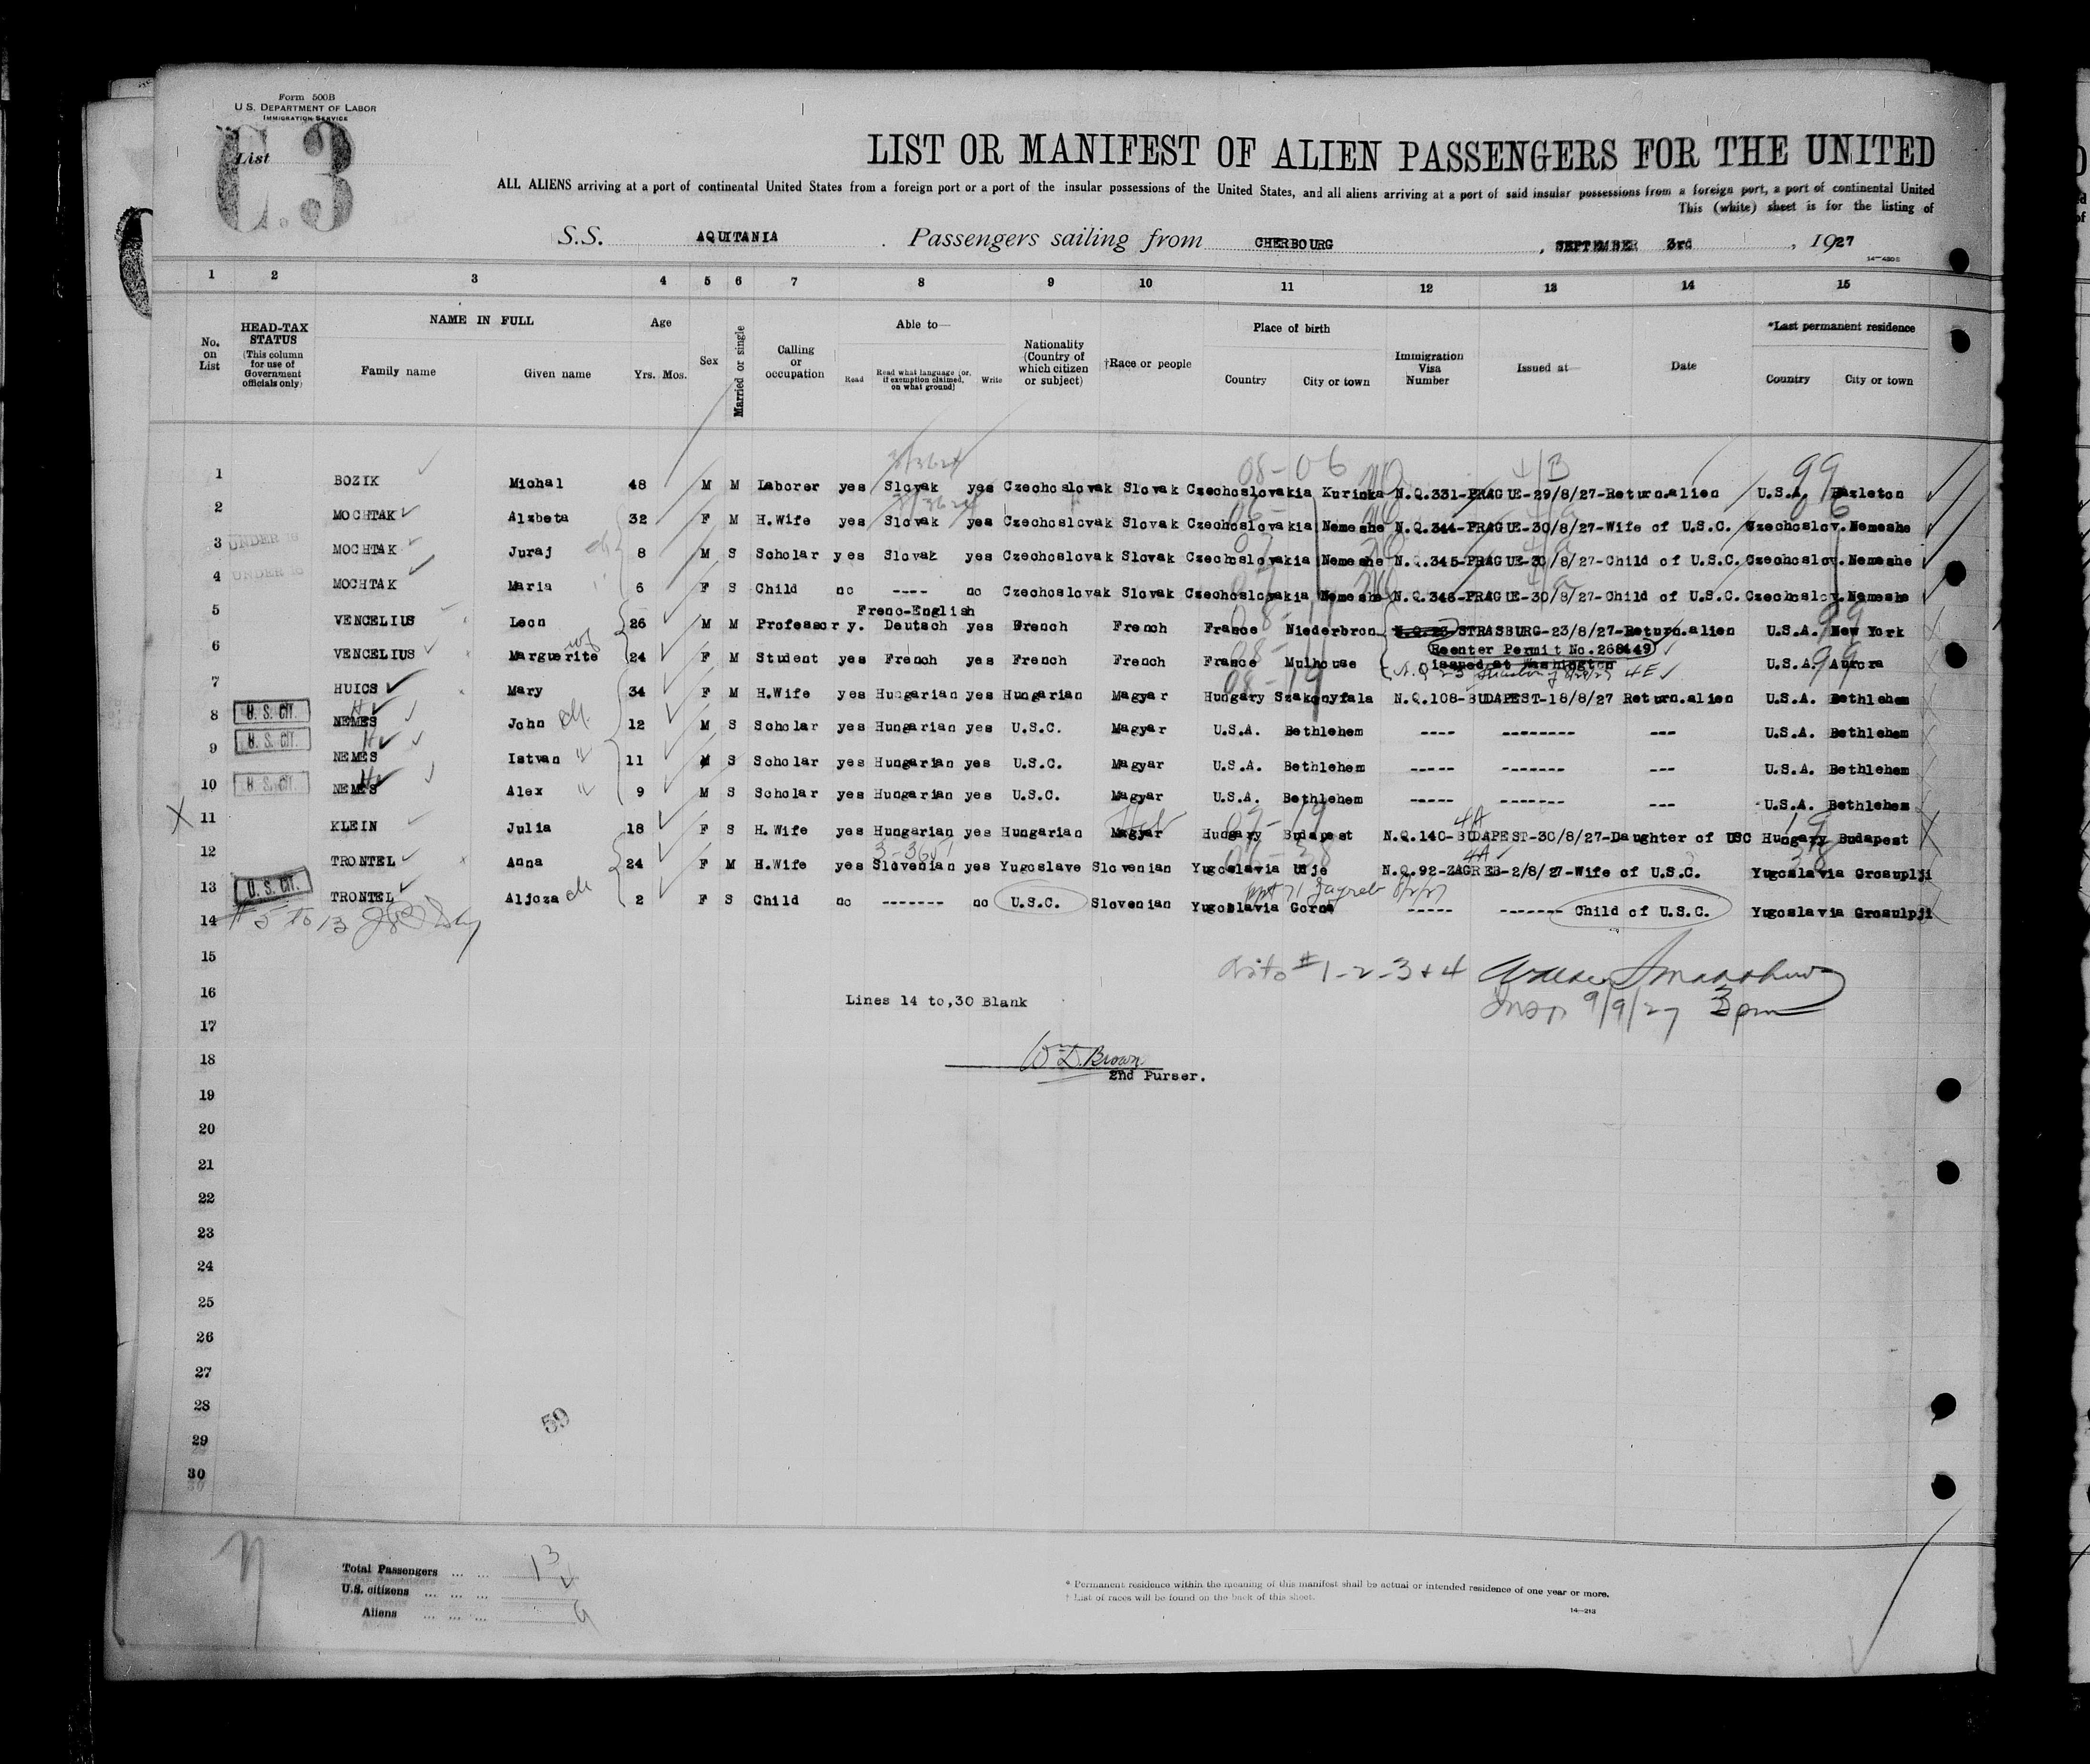 Form 500B
U.S. DEPARTMENT OF LABOR
IMMIGRATION SERVICE
List
C.3
LIST OR MANIFEST OF ALIEN PASSENGERS FOR THE UNITED
ALL ALIENS arriving at a port of continental United States from a foreign port or a port of the insular possessions of the United States, and all aliens arriving at a port of said insular possessions from a foreign port, a port of continental United
This (white) sheet is for the listing of
S.S. AQUITANIA . Passengers sailing from CHERBOURG , SEPTEMBER 3rd , 1927
1 2 3 4 5 6 7 8 9 10 11 12 13 14 15
No. on List HEAD-TAX STATUS (This column for use of Government officials only) NAME IN FULL Family name Given name Age Yrs. Mos. Sex Married or single Calling or occupation Able to— Read Read what language (or, if exemption claimed, on what ground) Write Nationality (Country of which citizen or subject) †Race or people Place of birth Country City or town Immigration Visa Number Issued at— Date *Last permanent residence Country City or town
1 BOZIK Michal 48 M M Laborer yes Slovak yes Czechoslovak Slovak Czechoslovakia Kurinka N.Q.331-PRAGUE-29/8/27-Return.alien U.S.A. Hazleton
2 MOCHTAK Alzbeta 32 F M H.Wife yes Slovak yes Czechoslovak Slovak Czechoslovakia Nemeshe N.Q.344-PRAGUE-30/8/27-Wife of U.S.C. Czechoslov.Nemeshe
3 UNDER 16 MOCHTAK Juraj 8 M S Scholar yes Slovak yes Czechoslovak Slovak Czechoslovakia Nemeshe N.Q.345-PRAGUE-30/8/27-Child of U.S.C. Czechoslov.Nemeshe
4 UNDER 16 MOCHTAK Maria 6 F S Child no ---- no Czechoslovak Slovak Czechoslovakia Nemeshe N.Q.346-PRAGUE-30/8/27-Child of U.S.C. Czechoslov.Nemeshe
5 VENCELIUS Leon 26 M M Professor y. Frenc-English Deutsch yes French French France Niederbron N.Q.23 STRASBURG-23/8/27-Return.alien U.S.A. New York
Reenter Permit No.268449
6 VENCELIUS Marguerite 24 F M Student yes French yes French French France Mulhouse issued at Washington U.S.A. Aurora
7 HUICS Mary 34 F M H.Wife yes Hungarian yes Hungarian Magyar Hungary Szakonyfala N.Q.108-BUDAPEST-18/8/27 Return.alien U.S.A. Bethlehem
8 U.S. CIT. NEMES John 12 M S Scholar yes Hungarian yes U.S.C. Magyar U.S.A. Bethlehem ---- -------- --- U.S.A. Bethlehem
9 U.S. CIT. NEMES Istvan 11 M S Scholar yes Hungarian yes U.S.C. Magyar U.S.A. Bethlehem ----- ------- --- U.S.A. Bethlehem
10 U.S. CIT. NEMES Alex 9 M S Scholar yes Hungarian yes U.S.C. Magyar U.S.A. Bethlehem ----- ------- --- U.S.A. Bethlehem
11 KLEIN Julia 18 F S H.Wife yes Hungarian yes Hungarian Magyar Hungary Budapest N.Q.140-BUDAPEST-30/8/27-Daughter of USC Hungary Budapest
12 TRONTEL Anna 24 F M H.Wife yes Slovenian yes Yugoslave Slovenian Yugoslavia Udje N.Q.92-ZAGREB-2/8/27-Wife of U.S.C. Yugoslavia Grosuplji
13 U.S. CIT. TRONTEL Aljoza 2 F S Child no ------- no U.S.C. Slovenian Yugoslavia Gorna ----- ------- Child of U.S.C. Yugoslavia Grosulpji
14 # 5 to 13
15
#1-2-3+4
16 Lines 14 to,30 Blank
9/9/27 3pm
17
18 Wm D. Brown
2nd Purser.
19
20
21
22
23
24
25
26
27
28
59
29
30
Total Passengers ... ... 13
U.S. citizens ... ... ...
Aliens ... ... ... 9
* Permanent residence within the meaning of this manifest shall be actual or intended residence of one year or more.
† List of races will be found on the back of this sheet.
14—213